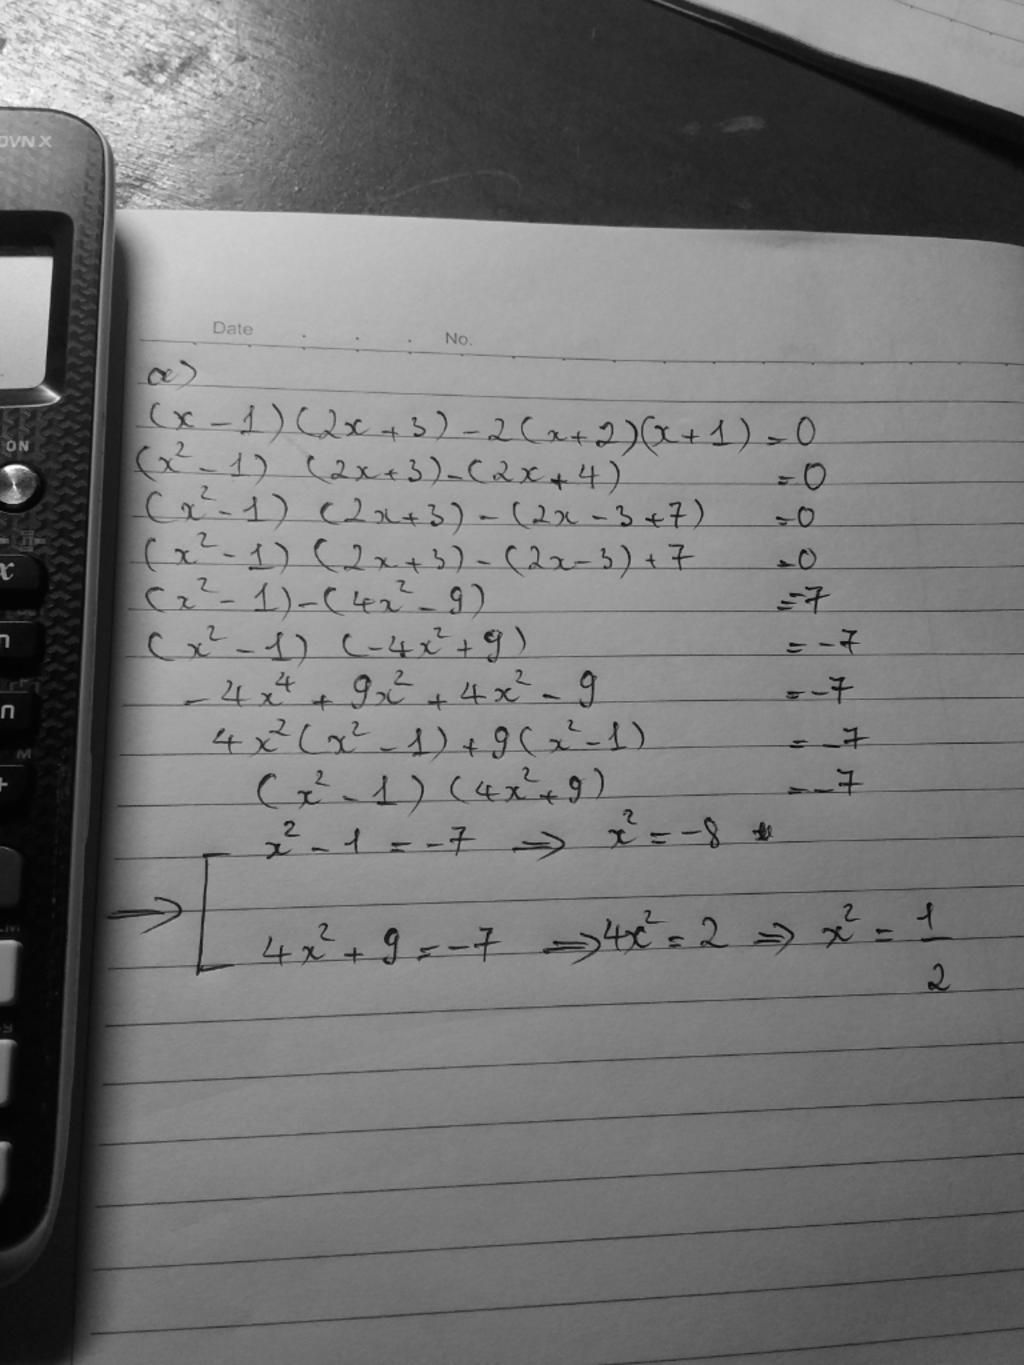 OVN X
Date . . . No.
a)
(x - 1)(2x + 3) - 2(x+2)(x+1) = 0
(x² - 1) (2x+3) - (2x+4) = 0
(x² - 1) (2x+3) - (2x - 3 + 7) = 0
(x² - 1) (2x+3) - (2x - 3) + 7 = 0
(x² - 1) - (4x² - 9) = -7
(x² - 1) (-4x² + 9) = -7
- 4x⁴ + 9x² + 4x² - 9 = -7
4x²(x² - 1) + 9(x² - 1) = -7
(x² - 1) (4x² + 9) = -7
x² - 1 = -7 ⇒ x² = -8
⇒ [ 4x² + 9 = -7 ⇒ 4x² = 2 ⇒ x² = 1/2
ON